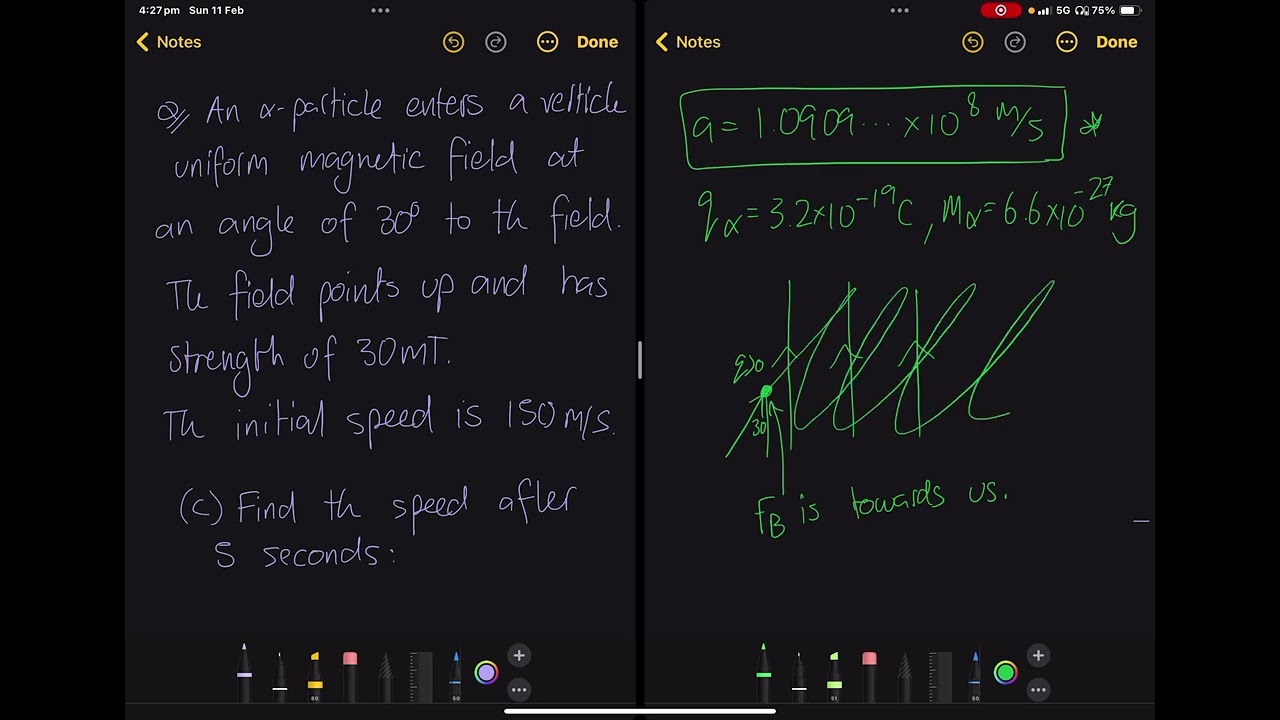 4:27pm Sun 11 Feb
5G 75%
Notes Done
Q, An α-particle enters a verticle
uniform magnetic field at
an angle of 30° to th field.
Th field points up and has
strength of 30mT.
Th initial speed is 150 m/s.
(c) Find th speed after
5 seconds:
80
50
Notes Done
a = 1.0909... ×10^8 m/s *
qα = 3.2×10^-19 C, Mα = 6.6×10^-27 kg
q>0
30
FB is towards us.
51
50